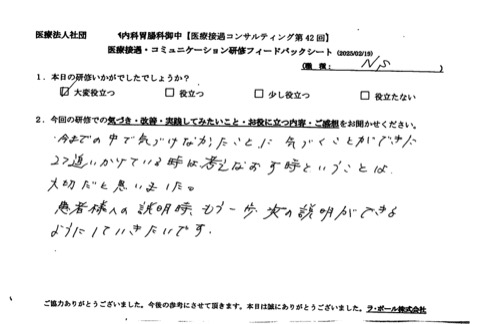 医療法人社団 内科胃腸科御中【医療接遇コンサルティング第42回】
医療接遇・コミュニケーション研修フィードバックシート (2025/02/19)
(職種: NS )
1.本日の研修いかがでしたでしょうか?
☑大変役立つ □役立つ □少し役立つ □役立たない
2.今回の研修での気づき・改善・実践してみたいこと・お役に立つ内容・ご感想をお聞かせください。
今までの中で気づけなかったことに気づくことができた
追いかけている時は考えなおす時ということは、
大切だと思いました。
患者様への説明時、もう一歩、次の説明ができる
ようにしていきたいです。
ご協力ありがとうございました。今後の参考にさせて頂きます。本日は誠にありがとうございました。ラ・ポール株式会社